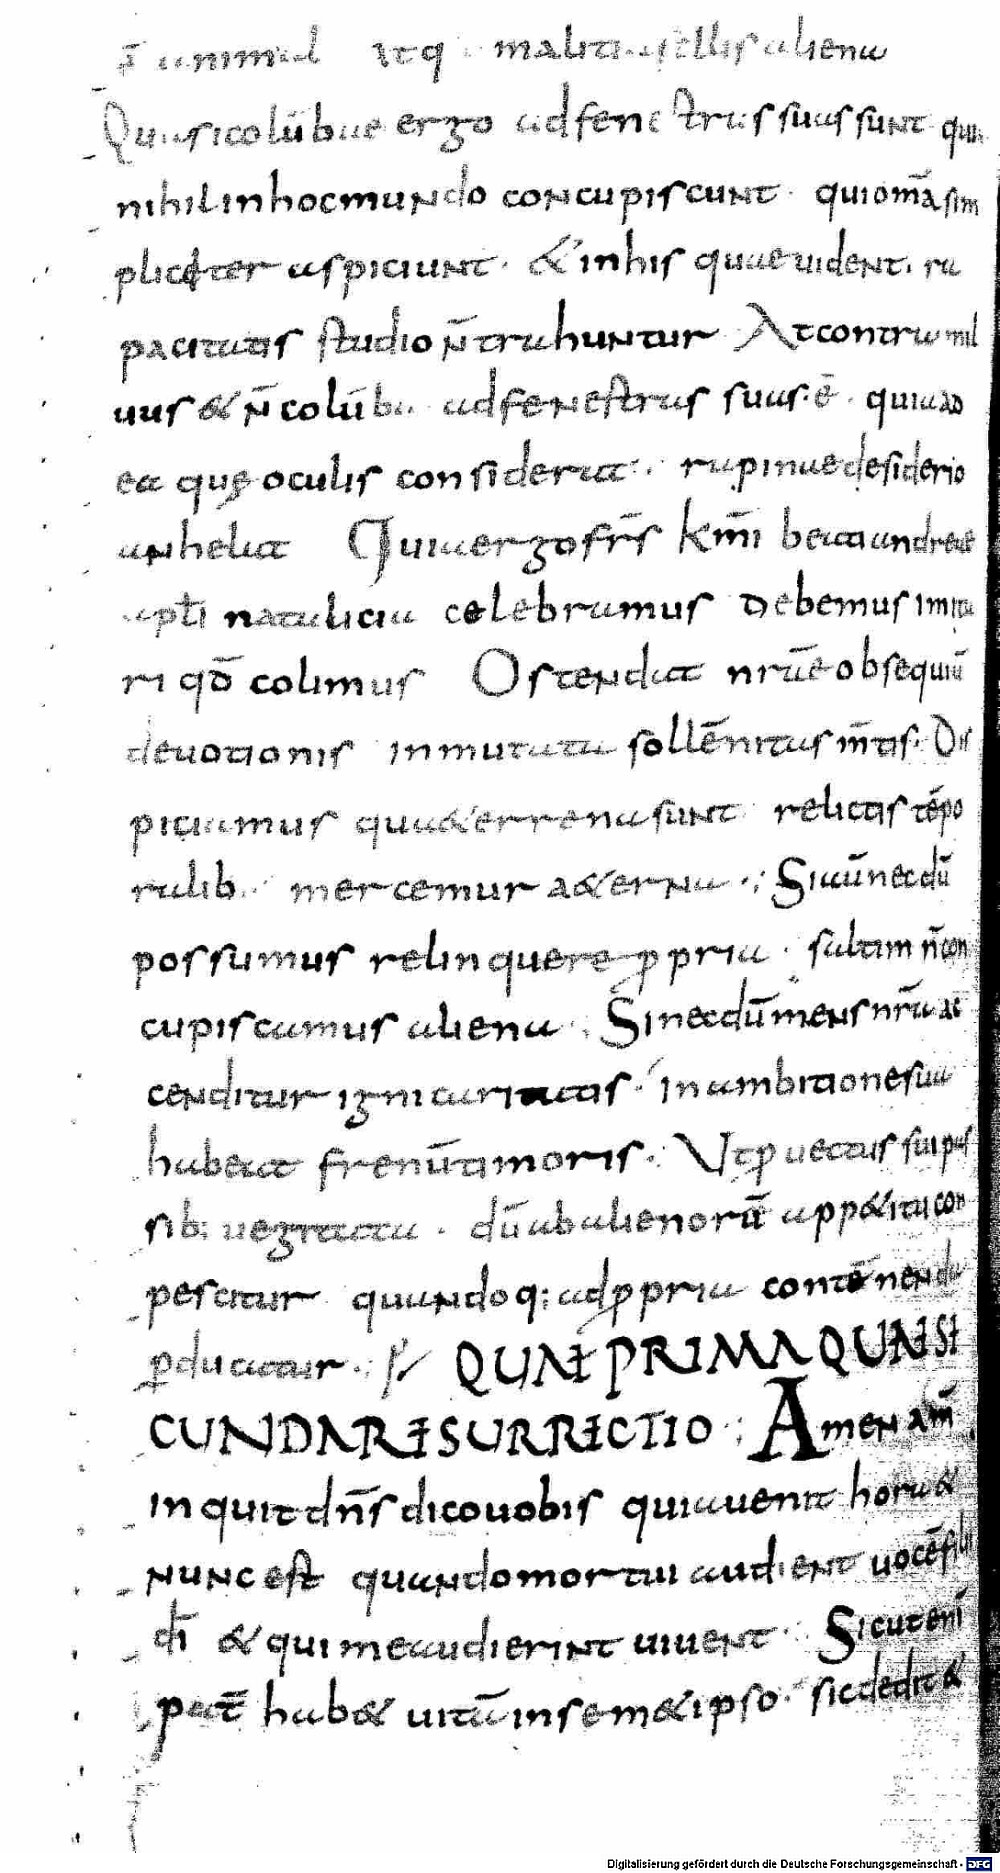 animal atq malitia fellis aliena
Quasi colūbae ergo ad fenestras suas sunt qui
nihil in hoc mundo concupiscunt · qui om̄a sim
pliciter aspiciunt · & in his quae uident · ra
pacitatis studio n̄ trahuntur · At contra mil
uus & n̄ colūba ad fenestras suas · ē · quia ad
ea quę oculis considerat · rapinae desiderio
anhelat Quia ergo fr̄s km̄i beati andreae
apl̄i natalicia celebramus debemus imita
ri qd̄ colimus Ostendat nr̄ae obsequiū
deuotionis inmutata sollēnitas m̄tis · Dis
piciamus quae terrena sunt relictis tēpo
ralib· mercemur aeterna · ; Si aū necdū
possumus relinquere ꝓpria · saltim n̄ con
cupiscamus aliena · ; Si necdū mens nr̄a ac
cenditur igni caritatis · in ambitione sua
habeat frenū timoris · Vt ꝓuectus sui pas
sib; uegetata · dū ab alienorū app&itu con
pescitur quandoq; ad ꝓpria contēnenda
ꝑducatur · ;
QUAE PRIMA QUAE SE
CUNDA RESURRECTIO · ; Amen am̄
inquit dn̄s dico uobis quia uenit hora &
nunc est quando mortui audient uocē filii
dī & qui me audierint uiuent · Sicut enī
pat̄ hab& uitā in sem&ipso · sic dedit &
Digitalisierung gefördert durch die Deutsche Forschungsgemeinschaft - DFG